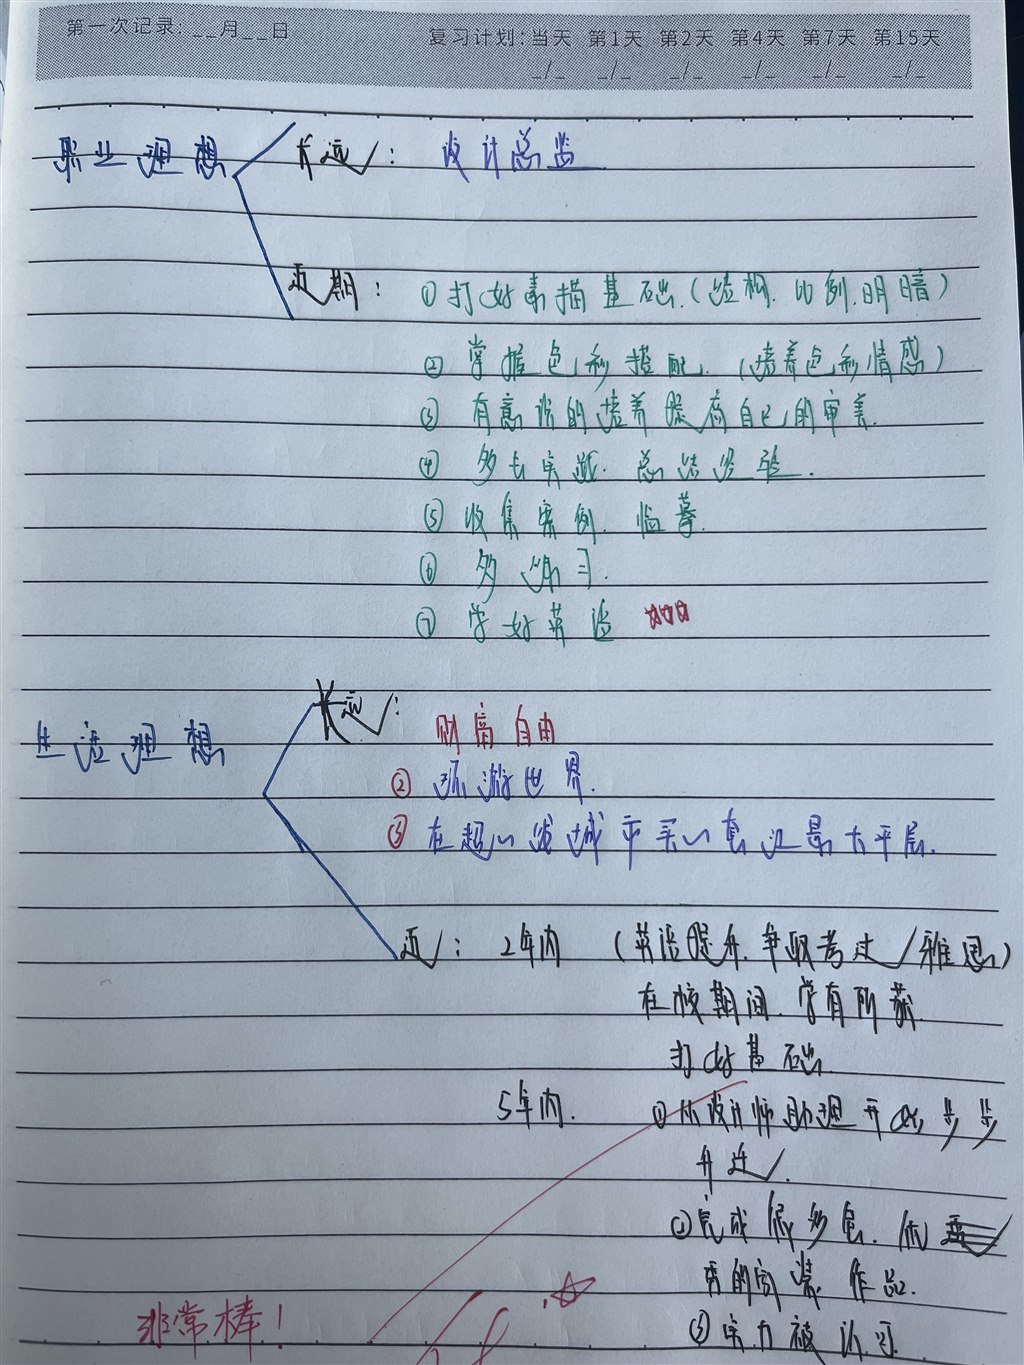 第一次记录:__月__日
复习计划:当天 第1天 第2天 第4天 第7天 第15天
_/_ _/_ _/_ _/_ _/_ _/_
职业理想
长远: 设计总监
近期: ①打好素描基础.(结构.比例.明暗)
② 掌握色彩搭配.(培养色彩情感)
③ 有意识的培养提高自己的审美.
④ 多去实践.总结经验.
⑤ 收集案例.临摹.
⑥ 多练习.
⑦ 学好英语
生活理想
长远:
财富自由
② 环游世界.
③ 在超一线城市买一套江景大平层.
近: 2年内 (英语提升.争取考过雅思)
在校期间.学有所获.
打好基础
5年内. ①从设计师助理开始,步步
升迁.
②完成很多色.优
秀的商业作品.
③实力被认可
非常棒!